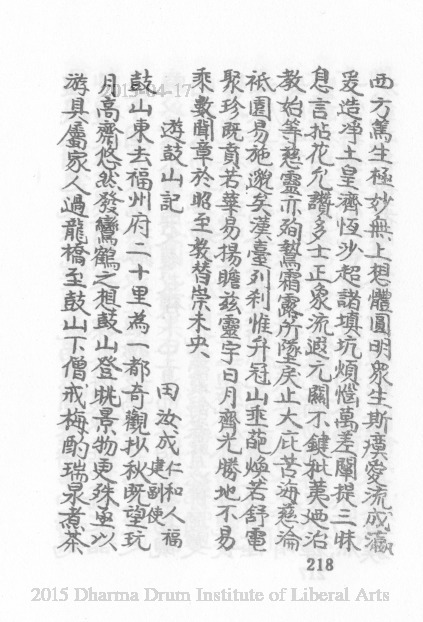 西方篤生極妙無上想體圓明眾生斯廣愛流成瀛
爰造淨土皇濟恆沙超諸填坑煩惱萬差闡提三昧
息言拈花允讚多士正象流遐元關不鍵秕荑𡛟治
教始等慈靈亦殉鷲霜露所墜戾止大庇苦海慈淪
祇園易施邈矣漢臺列剎惟升冠山垂葩煥若舒電
聚珍旣賁若華易揚瞻茲靈宇日月齊光勝地不易
乘數聞章於昭至教替崇未央
遊鼓山記 田汝成 仁和人福建副使
鼓山東去福州府二十里為一都奇觀抄秋旣望玩
月高齋悠然發鸞鶴之想鼓山登眺景物更殊亟以
游具屬家人過龍橋至鼓山下僧戒梅酌瑞泉煮茶
218
2015-04-17
2015 Dharma Drum Institute of Liberal Arts